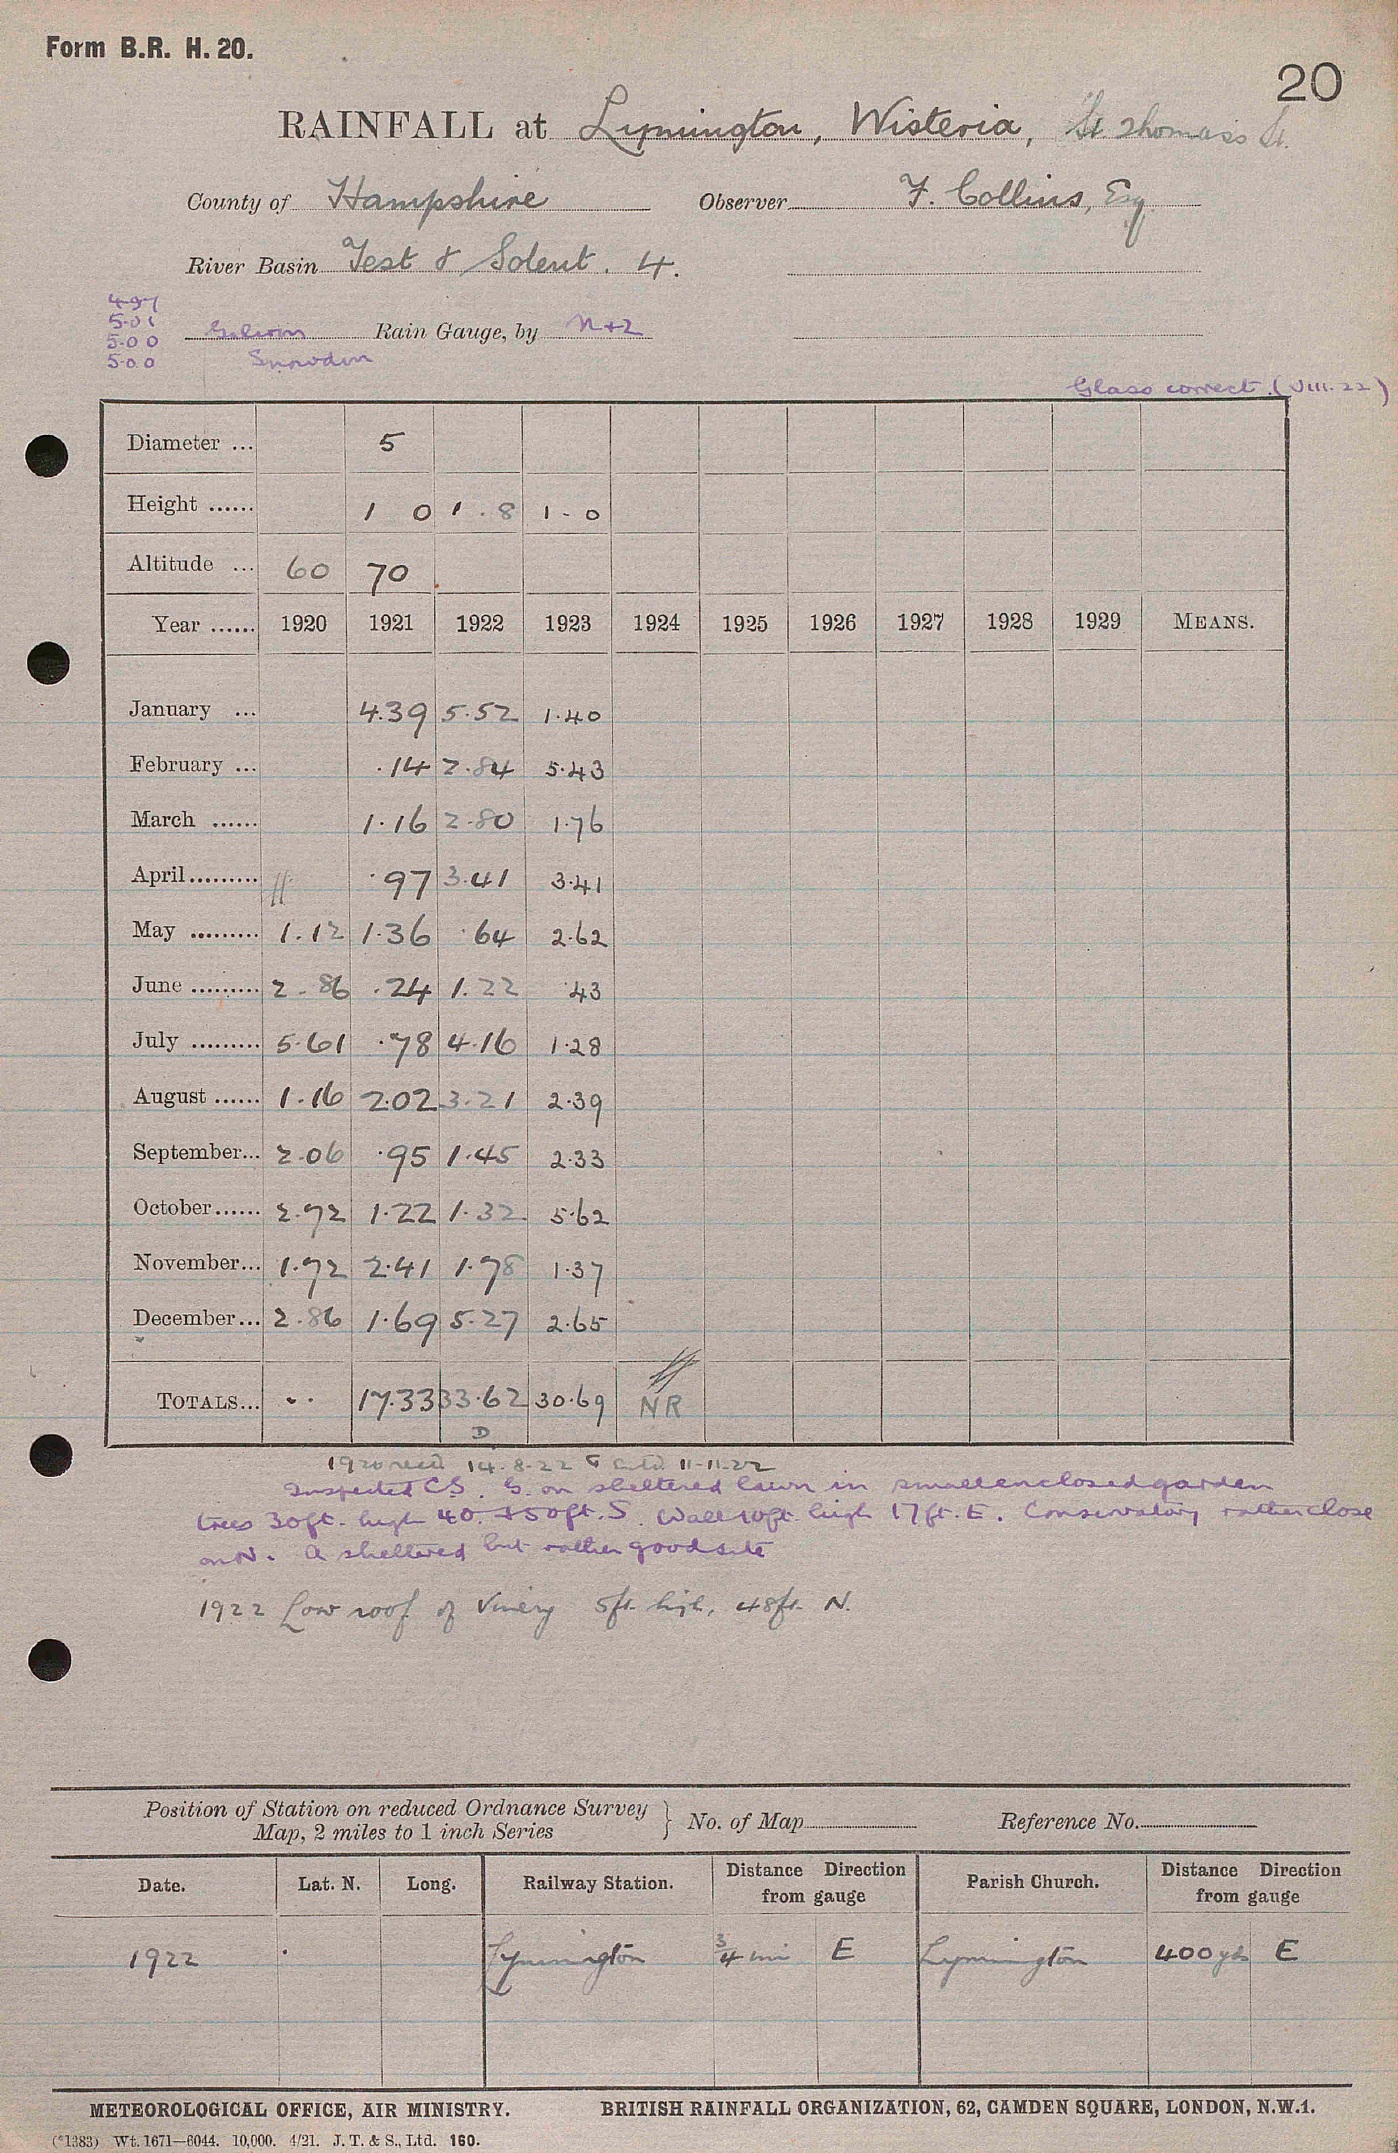 Form B.R. H. 20.
20
RAINFALL at Lymington, Wisteria, St Thomas's St.
County of Hampshire Observer F. Collins, Esq.
River Basin Test & Solent. 4.
4.97
5.01
5.00
5.00
Rain Gauge, by N+Z
Snowdon
Glass correct. (VIII. 22)
Diameter ... 5
Height ...... 1 0 1.8 1-0
Altitude ... 60 70
Year ...... 1920 1921 1922 1923 1924 1925 1926 1927 1928 1929 MEANS.
January ... 4.39 5.52 1.40
February ... .14 2.84 5.43
March ...... 1.16 2.80 1.76
April ......... // .97 3.41 3.41
May ......... 1.12 1.36 .64 2.62
June ......... 2.86 .24 1.22 .43
July ......... 5.61 .78 4.16 1.28
August ...... 1.16 2.02 3.21 2.39
September... 2.06 .95 1.45 2.33
October...... 2.72 1.22 1.32 5.62
November... 1.72 2.41 1.78 1.37
December... 2.86 1.69 5.27 2.65
TOTALS... .. 17.33 33.62 30.69 NR
D
1920 recd 14.8.22 11-11-22
Inspected C.S. G. on sheltered lawn in small enclosed garden
trees 30ft. high 40. + 50ft. S. Wall 10ft. high 17ft. E. Conservatory rather close
on N. A sheltered but rather good site
1922 Low roof of Vinery 5ft. high, 48ft. N.
Position of Station on reduced Ordnance Survey
Map, 2 miles to 1 inch Series } No. of Map Reference No.
Date. Lat. N. Long. Railway Station. Distance Direction from gauge Parish Church. Distance Direction from gauge
1922 Lymington 3/4 mi E Lymington 400 yds E
METEOROLOGICAL OFFICE, AIR MINISTRY. BRITISH RAINFALL ORGANIZATION, 62, CAMDEN SQUARE, LONDON, N.W.1.
(*1383) Wt. 1671—6044. 10,000. 4/21. J. T. & S., Ltd. 160.